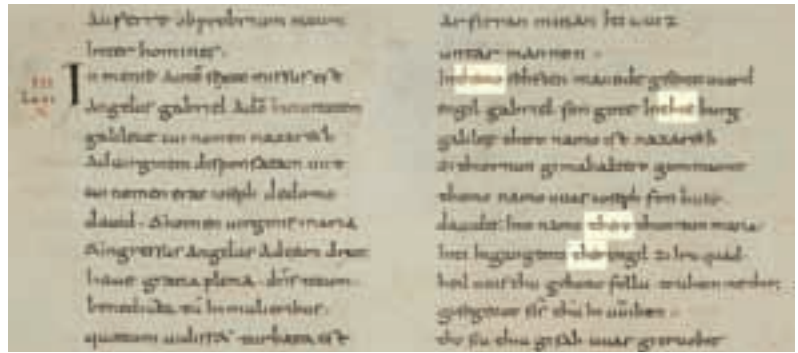 Auferre obprobrium meum
Inter homines.
III
Luc.
In mense autē sexto missus est
Angelus gabriel A dō In ciuitatem
galileae cui nomen nazareth
Ad uirginem disponsatam uiro
cui nomen erat ioseph de domo
dauid. & nomen uirginis maria
& ingressus Angelus Ad eam dixit
haue gratia plena dn̄s tecum
benedicta tū In mulieribus.
quae cum uidisset turbata est
arfirran minan Itiuuiz
untar mannon.
In themo sehsten manude gisentit uuard
engil gabriel fon gote In thie burg
galilee thero namo ist nazareth
zi thiornun gimahaltero gommanne
themo namo uuas ioseph fon huse
dauides Inti namo thero thiornun maria
Inti Ingangenti ther engil zi Iru quad
heil uuis thu gebono follu truhtin
gisegenot sīs thū In uuībun.
tho siu thiu gisah uuas gitruobit